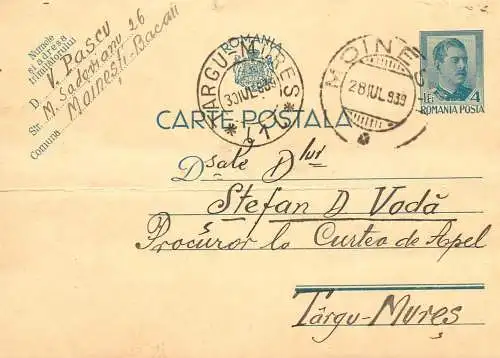 Numele
și adresa
trimițătorului
D. V. Pascu
Str. M. Sadoveanu 26
Comuna Moinești-Bacău
ROMANIA
TÂRGU-MUREȘ
30 IUL 939
MOINEȘTI
28 IUL 939
LEI 4
ROMANIA POSTA
CARTE POSTALA
Dsale Dlui
Ștefan D Vodă
Procuror la Curtea de Apel
Târgu-Mureș